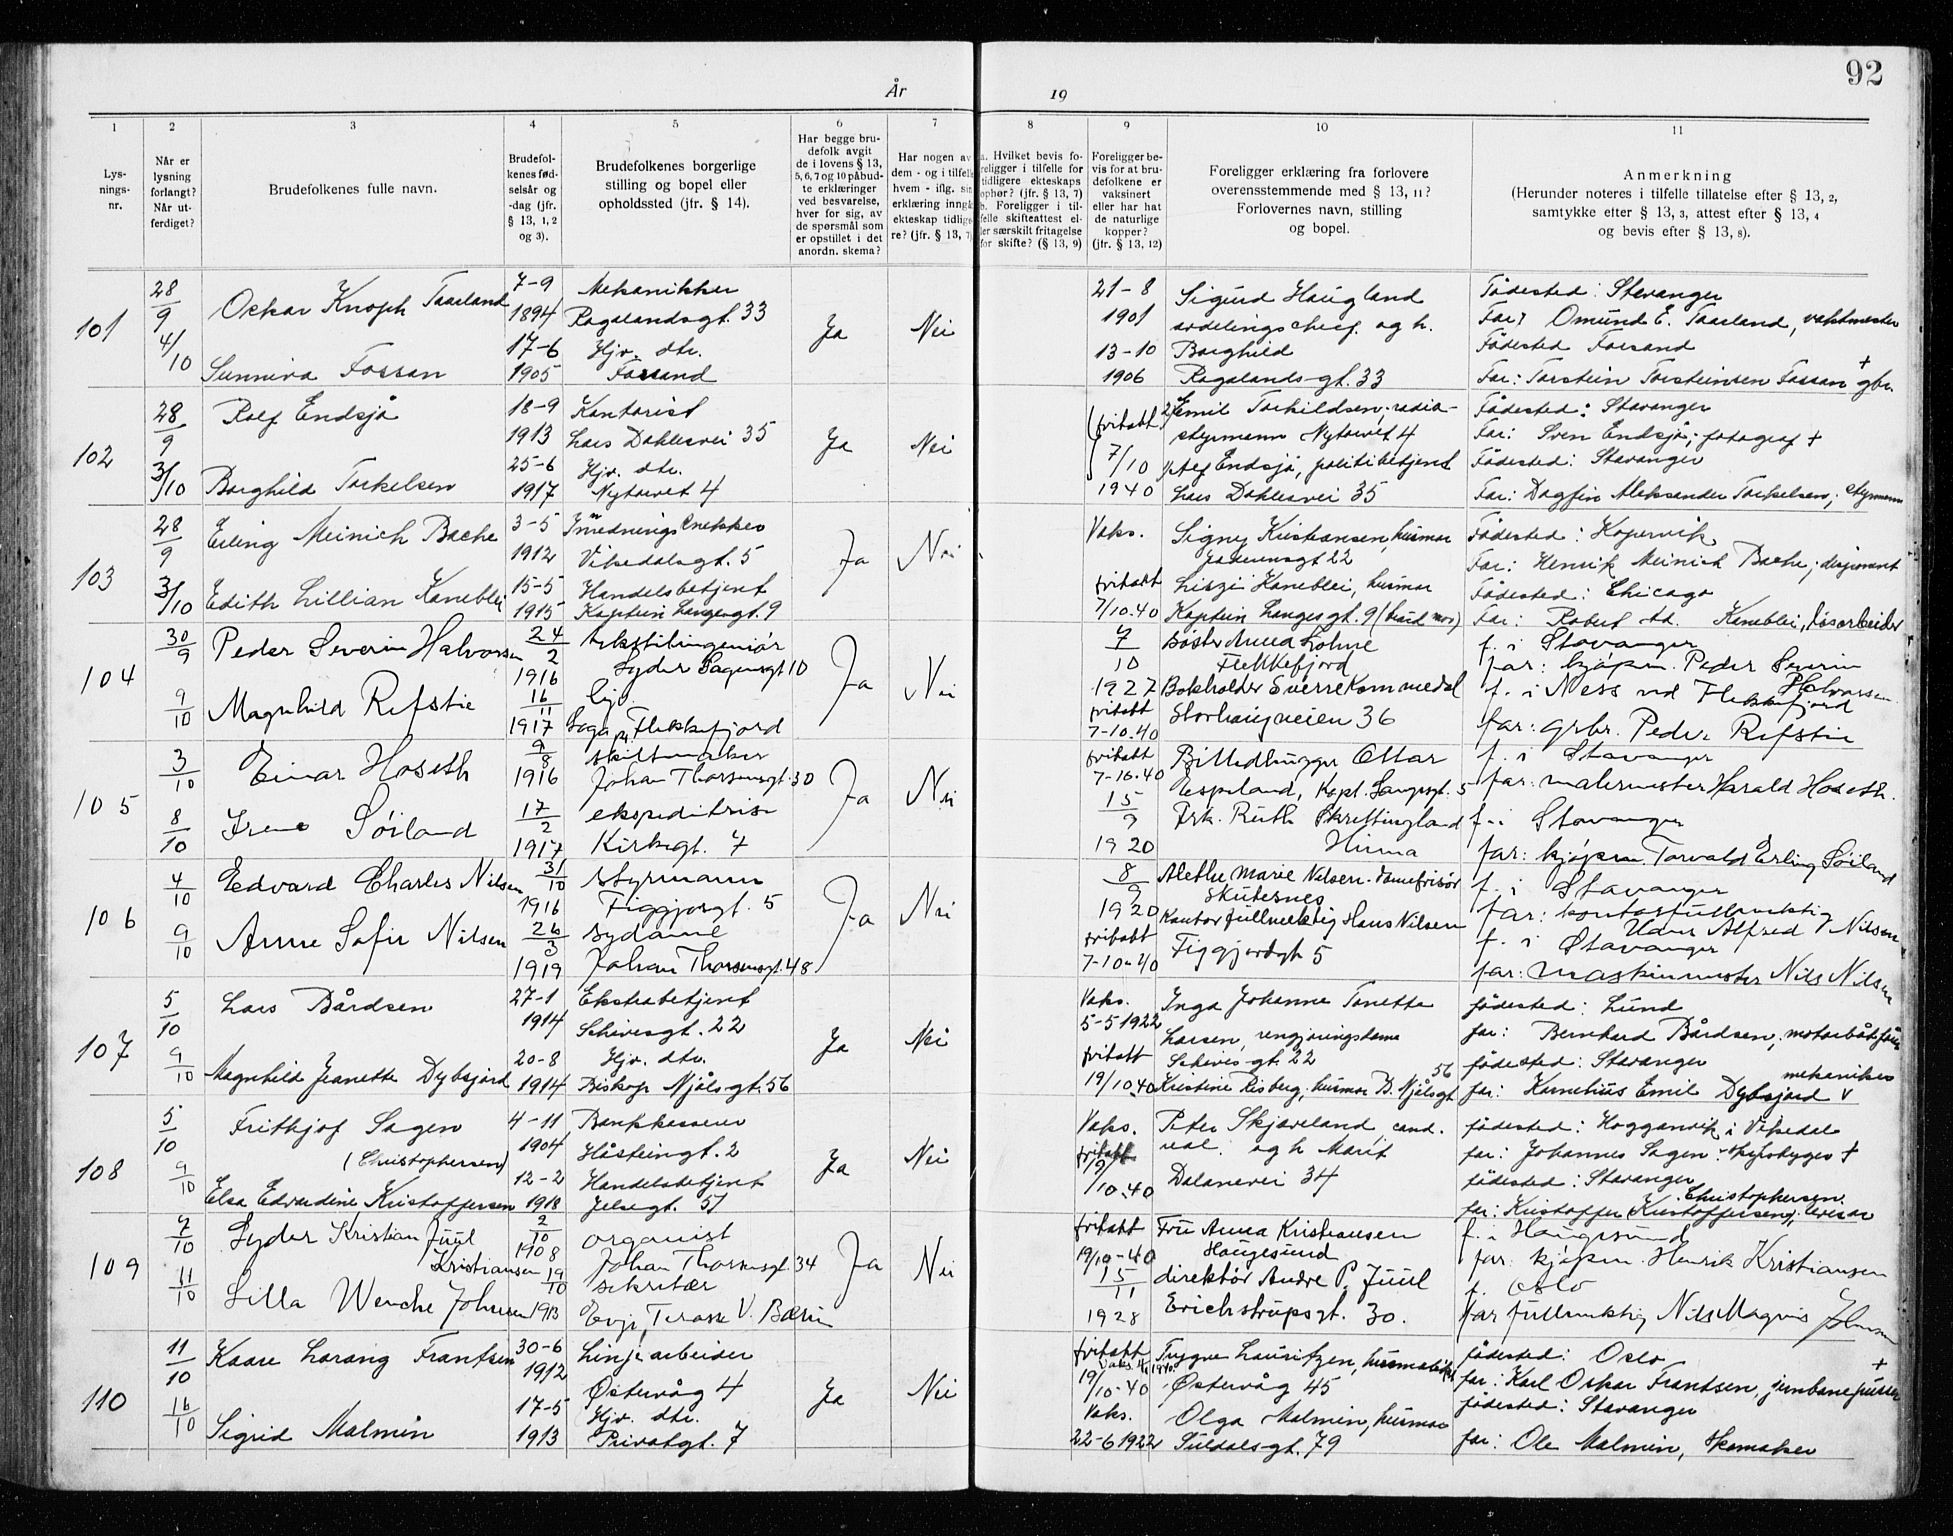 92
År
19
1
2
3
4
5
6
7
8
9
10
11
Lys-
nings-
nr.
Når er
lysning
forlangt?
Når ut-
ferdiget?
Brudefolkenes fulle navn.
Brudefol-
kenes fød-
selsår og
-dag (jfr.
§ 13, 1, 2
og 3).
Brudefolkenes borgerlige
stilling og bopel eller
opholdssted (jfr. § 14).
Har begge bru-
defolk avgit
de i lovens § 13,
5, 6, 7 og 10 påbud-
te erklæringer
ved besvarelse,
hver for sig, av
de spørsmål som
er opstillet i det
anordn. skema?
Har nogen av
dem - og i tilfelle
hvem - iflg. sin
erklæring inngå
ekteskap tidlige-
re? (jfr. § 13, 7)
a. Hvilket bevis fo-
religger i tilfelle for
tidligere ekteskaps
ophør? (jfr. § 13, 7)
b. Foreligger i til-
felle skifteattest el-
ler særskilt fritagelse
for skifte? (§ 13, 9)
Foreligger be-
vis for at bru-
defolkene er
vaksinert
eller har hat
de naturlige
kopper?
(jfr. § 13, 12)
Foreligger erklæring fra forlovere
overensstemmende med § 13, 11?
Forlovernes navn, stilling
og bopel.
Anmerkning
(Herunder noteres i tilfelle tillatelse efter § 13, 2,
samtykke efter § 13, 3, attest efter § 13, 4
og bevis efter § 13, 8).
101
28/9
4/10
Oskar Knoph Taarland
7-9
1894
Mekanikker
Rogalandsgt. 33
Sunniva Fossan
17-6
1905
Hjv. dtr.
Forsand
Ja
Nei
21-8
1901
13-10
1906
Sigurd Haugland
avdelingschef og h.
Borghild
Rogalandsgt. 33
Fødested: Stavanger
Far: Omund E. Taarland, vaktmester
Fødested Forsand
Far: Torstein Torsteinsen Fossan + gbr.
102
28/9
3/10
Rolf Endsjø
18-9
1913
Kontorist
Lars Dahlesvei 35
Borghild Torkelsen
25-6
1917
Hjv. dtr.
Nytorvet 4
Ja
Nei
fritatt
7/10
1940
Emil Torkildsen, radio-
styrmann Nytorvet 4
Alf Endsjø, politibetjent
Lars Dahlesvei 35
Fødested: Stavanger
Far: Sven Endsjø, fotograf +
Fødested: Stavanger
Far: Dagfin Aleksander Torkelsen, styrmann
103
28/9
3/10
Erling Meinich Bache
3-5
1912
Innrednings snekker
Vikedalsgt. 5
Edith Lillian Kaneblei
15-5
1915
Handelsbetjent
Kaptein Langesgt. 9
Ja
Nei
Vaks.
fritatt
7/10.40
Signy Kristiansen, husmor
22
Liszi Kaneblei, husmor
Kaptein Langes gt. 9 (brud mor)
Fødested: Kopervik
Far: Henrik Meinich Bache, disponent
Fødested: Chicago
Far: Robert Ad. Kaneblei, løsarbeider
104
30/9
9/10
Peder Severin Halvorsen
24/2
1916
tekstilingeniør
Lyder Sagensgt 10
Magnhild Refstie
16/11
1917
Flekkefjord
Ja
Nei
7/10
1927
fritatt
7-10.40
Søster Anna Lohne
Flekkefjord
Bokholder Sverre Kommedal
Storhaugveien 36
f. i Stavanger
far: kjøpm. Peder Severin
Halvorsen
f. i Ness ved Flekkefjord
far: grbr. Peder Refstie
105
3/10
8/10
Einar Hoseth
9/8
1916
skiltmaker
Johan Thorsensgt. 30
Irene Søiland
17/2
1917
ekspeditrise
Kirkegt. 7
Ja
Nei
fritatt
7-10.40
15/9
1920
Billedhugger Ottar
Espeland, Kapt. Langesgt. 5
Frk. Ruth Skrettingland
Hinna
f. i Stavanger
far: malermester Harald Hoseth.
f. i Stavanger
far: kjøpm. Torvald Erling Søiland
106
4/10
9/10
Edvard Charles Nilsen
31/10
1916
styrmann
Figgjogt. 5
Anne Sofie Nilsen
26/3
1919
sydame
Johan Thorsensgt. 48
Ja
Nei
8/9
1920
fritatt
7-10-40
Alethe Marie Nilsen. damefrisør
Skutesnes
Kontorfullmektig Hans Nilsen
5
f. i Stavanger
far: kontorfullmektig
Hans Alfred Nilsen
f. i Stavanger
far: maskinmester Nils Nilsen
107
5/10
9/10
Lars Bårdsen
27-1
1914
Ekstrabetjent
Schivesgt. 22
Magnhild Jeanette Dybsjord
20-8
1914
Hjv. dtr.
Biskop Njålsgt. 56
Ja
Nei
Vaks.
5-5 1922
fritatt
19/10.40
Inga Johanne Tonette
Larsen, rengjøringsdame
Schives gt. 22
Kristine Risberg, husmor B. Njålsgt 56
fødested: Lund
far: Bernhard Bårdsen, motorbåtfører
fødested: Stavanger
mekaniker
far: Kornelius Emil Dybsjord
108
5/10
9/10
Frithjof Sagen
4-11
1904
Bankkasserer
Håsteinsgt. 2
(Christophersen)
Elsa Edvardine Kristoffersen
12-2
1918
Handelsbetjent
Jelsagt. 51
Ja
Nei
Vaks.
fritatt
19/10.40
Peter Skjæveland cand.
real. og h. Marit
Dalanevei 34
fødested: Hogganvik i Vikedal
far: Johannes Sagen skipsbygger +
fødested: Stavanger
Christophersen
far: Kristoffer Kristoffersen, revisor
109
7/10
11/10
Lyder Kristian Juul
Kristiansen
2/10
1908
organist
Johan Thorsensgt. 34
Lilla Wenche Johnsen
19/10
1913
sekretær
Terasse V. Bærum
Ja
Nei
fritatt
19/10-40
15/11
1928
Fru Anna Kristiansen
Haugesund
direktør Andre P. Juul
Erichstrupsgt. 30.
f. i Haugesund
far: kjøpm. Henrik Kristiansen
f. Oslo
far fullmektig Nils Magnus Johnsen
110
11/10
16/10
Kaare Lorang Frantsen
30-6
1912
Linjearbeider
Østervåg 4
Sigrid Malmin
17-5
1913
Hjv. dtr.
Privatgt. 7
Ja
Nei
fritatt
19/10-40
Vaks.
22-6 1922
Trygve Lauritzen,
Østervåg 45
Olga Malmin, husmor
Suldalsgt. 79
fødested: Oslo
far: Karl Oskar Frantsen, +
fødested: Stavanger
far: Ole Malmin, skomaker